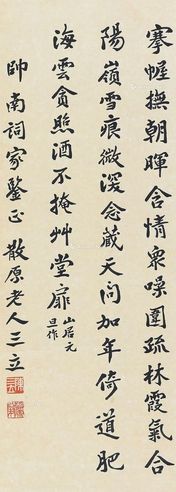 搴幄撫朝暉含情眾噪圍疏林霞氣合
陽嶺雪痕微深念藏天問加年倚道肥
海雲貪照酒不掩艸堂扉
山居元
旦作
帥南詞家鑒正 散原老人三立